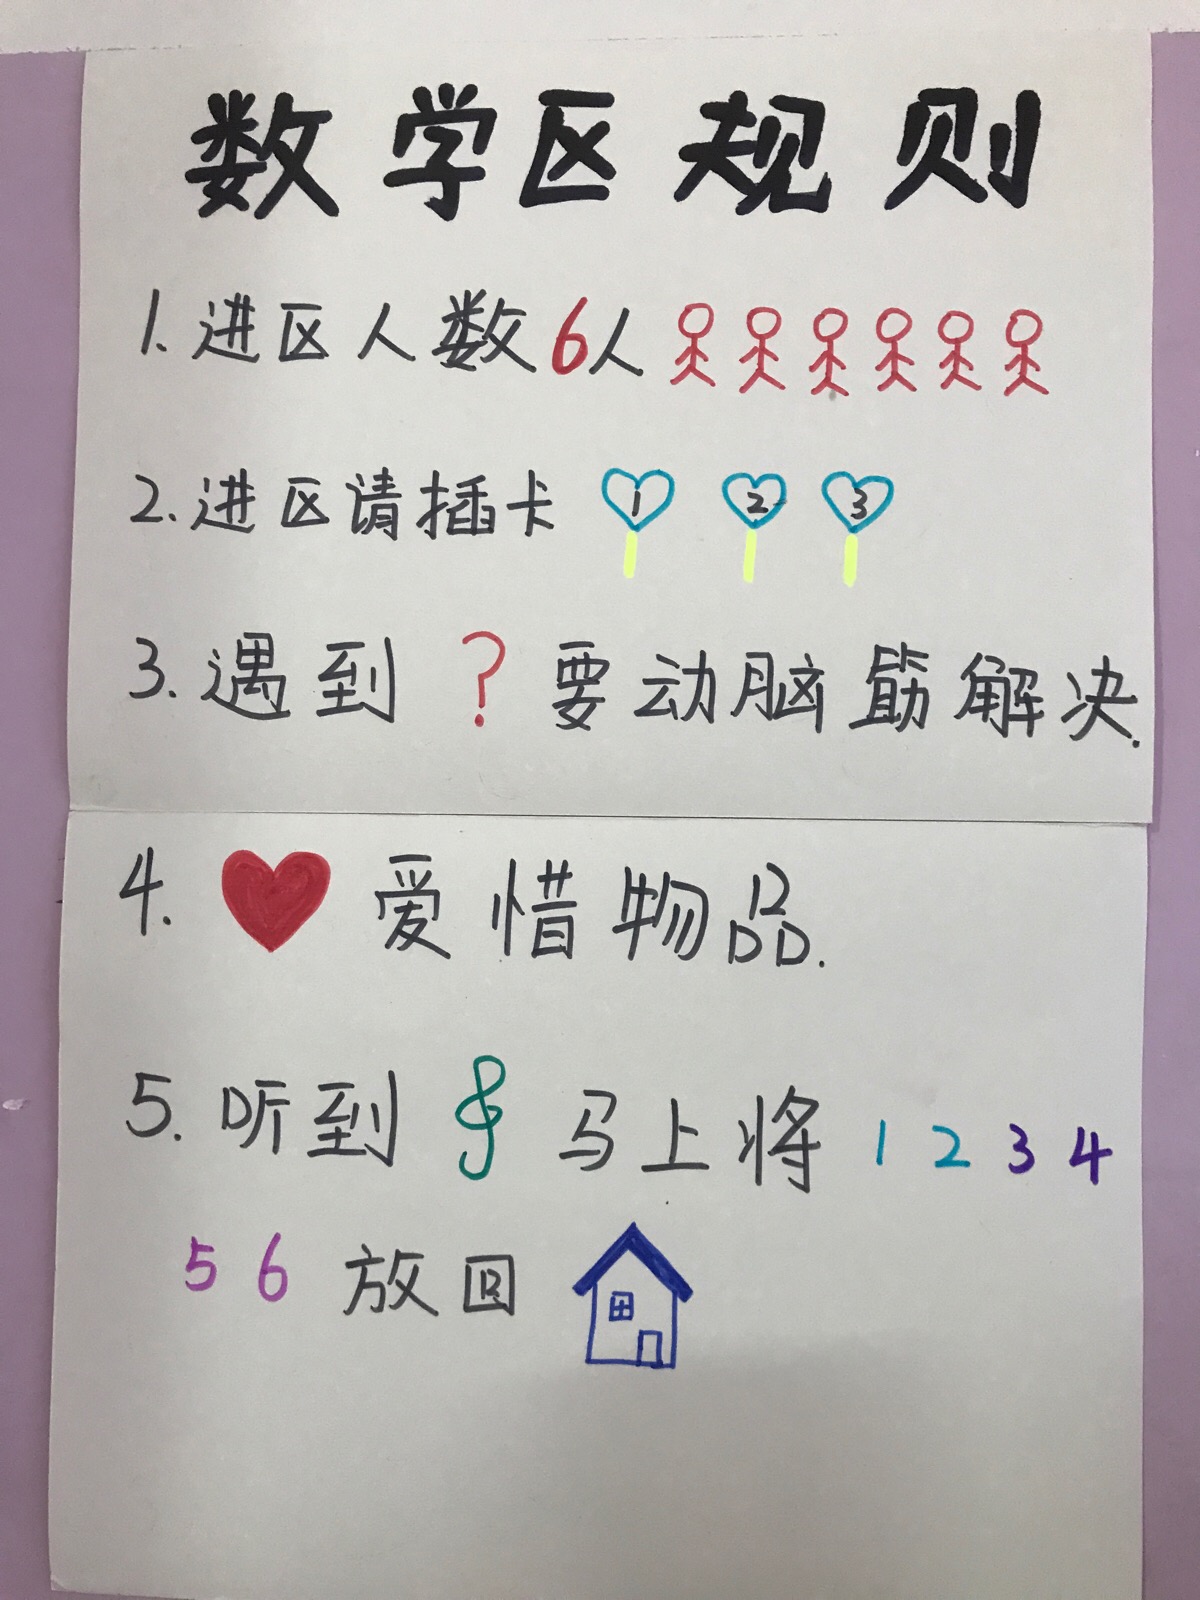 数学区规则
1. 进区人数6人
2. 进区请插卡 1 2 3
3. 遇到 ? 要动脑筋解决.
4. 爱惜物品.
5. 听到 马上将 1 2 3 4
5 6 放回